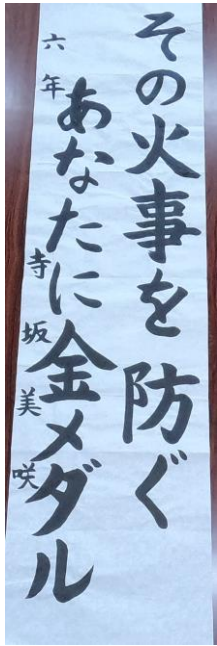 その火事を防ぐ
あなたに金メダル
六年 寺坂美咲